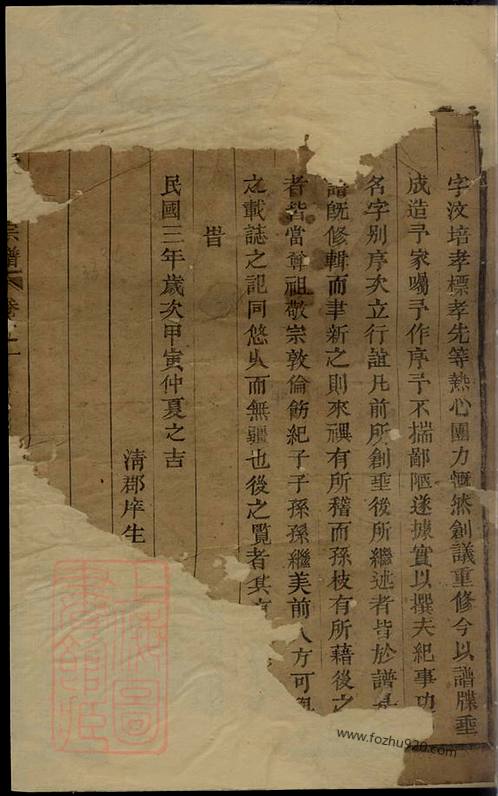 字汶培孝標孝先等熱心團力慨然創議重修今以譜牒垂
成造予家囑予作序予不揣鄙陋遂據實以撰夫紀事功
名字別序次立行誼凡前所創垂後所繼述者皆於譜
譜既修輯而聿新之則來禩有所稽而孫枝有所藉後之
者皆當尊祖敬宗敦倫飭紀子子孫孫繼美前人方可
之載誌之記同悠久而無疆也後之覽者其
旹
民國三年歲次甲寅仲夏之吉
清郡庠生
宗譜 卷之一
上海圖書館藏
www.fozhu920.com